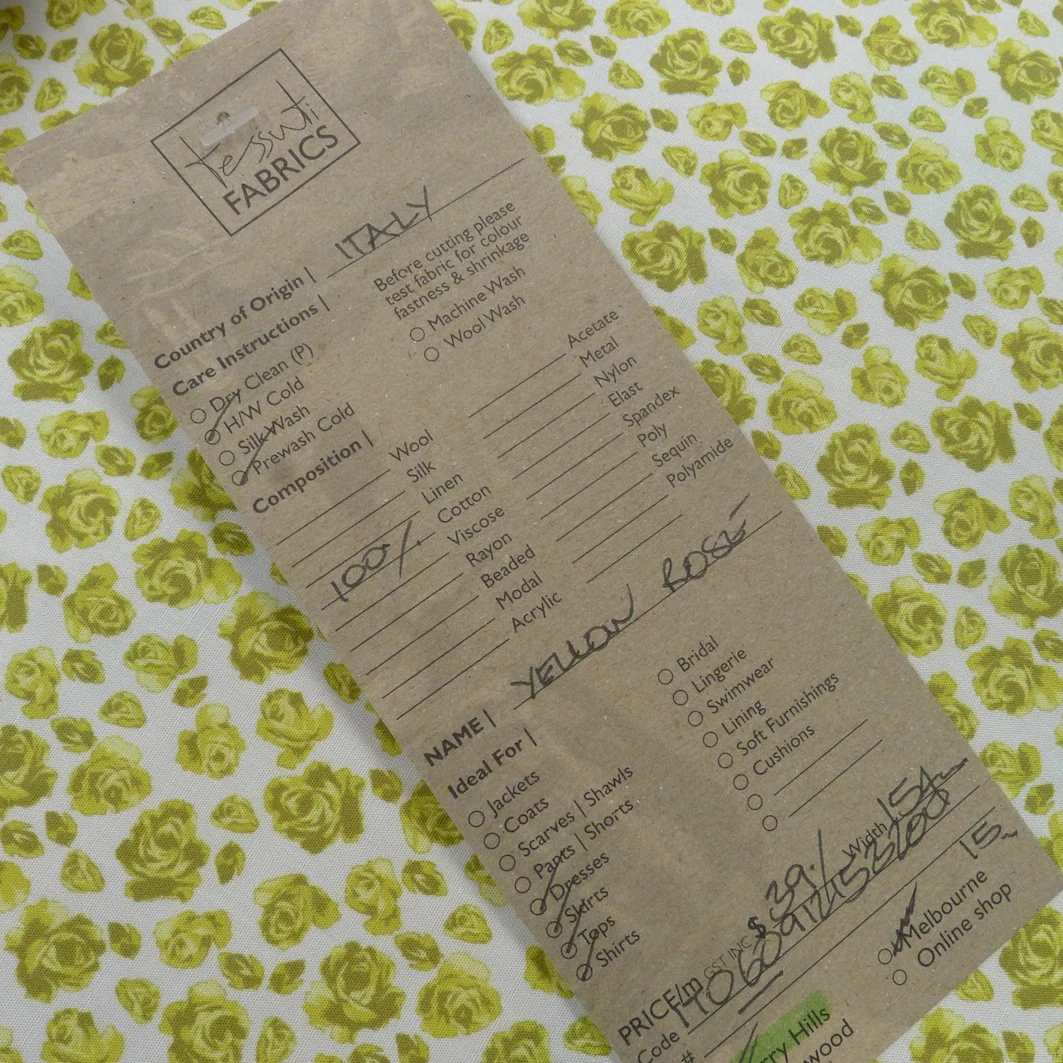 tessuti
FABRICS
Country of Origin | ITALY
Care Instructions |
Before cutting please
test fabric for colour
fastness & shrinkage
Dry Clean (P)
H/W Cold
Silk Wash
Prewash Cold
Machine Wash
Wool Wash
Composition |
Wool
Silk
Linen
100% Cotton
Viscose
Rayon
Beaded
Modal
Acrylic
Acetate
Metal
Nylon
Elast
Spandex
Poly
Sequin
Polyamide
NAME | YELLOW ROSE
Ideal For |
Jackets
Coats
Scarves | Shawls
Pants | Shorts
Dresses
Skirts
Tops
Shirts
Bridal
Lingerie
Swimwear
Lining
Soft Furnishings
Cushions
PRICE/m GST INC $ 39 Width
Code
#
15
Melbourne
Online shop
rry Hills
wood